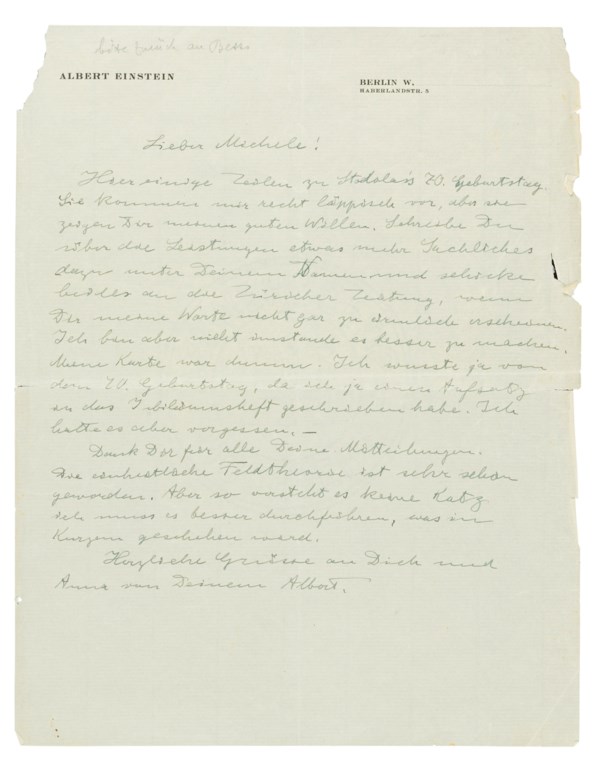 bitte zurück an Besso
ALBERT EINSTEIN
BERLIN W.
HABERLANDSTR. 5
Lieber Michele!
Hier einige Zeilen zu Stodolas 70. Geburtstag.
Sie kommen mir recht läppisch vor, aber sie
zeigen Dir meinen guten Willen. Schreibe Du
über die Leistungen etwas mehr Sachliches
dazu unter Deinem Namen und schicke
beides an die Züricher Zeitung, wenn
Dir meine Worte nicht gar zu ärmlich erscheinen.
Ich bin aber nicht imstande es besser zu machen.
Meine Karte war dumm. Ich wusste ja von
dem 70. Geburtstag, da ich ja einen Aufsatz
in das Jubiläumsheft geschrieben habe. Ich
hatte es aber vergessen. —
Dank Dir für alle Deine Mitteilungen.
Die einheitliche Feldtheorie ist sehr schön
geworden. Aber so versteht es keine Katz
ich muss es besser durchführen, was in
Kurzem geschehen wird.
Herzliche Grüsse an Dich und
Anna von Deinem Albert.